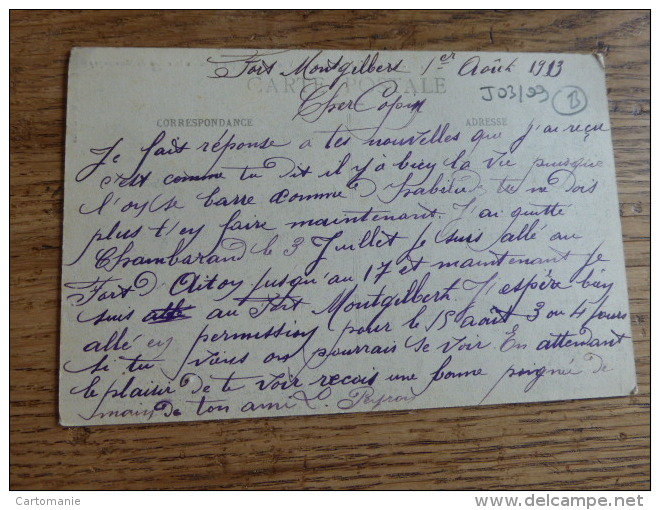 Fort Montgilbert 1er Août 1913
CARTE POSTALE
J03/99 B
Cher Copin
CORRESPONDANCE ADRESSE
Je fais réponse a tes nouvelles que j'ai reçu
c'est comme tu dit il y à bien la vie puisque
l'on se barre comme d'habitude tu ne dois
plus t'en faire maintenant. J'ai quitté
Chambarand le 3 Juillet je suis allé au
Fort D'Aiton jusqu'au 17 et maintenant je
suis au Fort Montgilbert. J'espère bien
allé en permission pour le 15 août 3 ou 4 jours
si tu viens on pourrais se voir. En attendant
le plaisir de te voir recois une bonne poignée de
main de ton ami L.
Cartomanie
delcampe.net